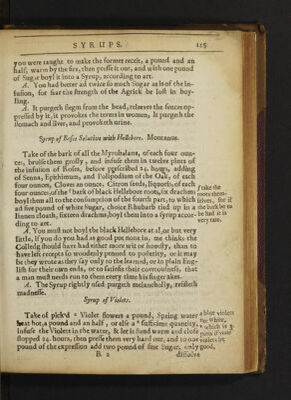 SYRUPS. 115
you were taught to make the former receit, a pound and an
half, warm by the fire, then presse it out, and with one pound
of Sugar boyl it into a Syrup, according to art.
A. You had better ad twice so much Sugar as is of the in-
fusion, for fear the strength of the Agrick be lost in boy-
ling.
A. It purgeth flegm from the head, relieves the sences op-
pressed by it, it provokes the terms in women, it purgeth the
stomach and liver, and provoketh urine.
Syrup of Roses Solutive with Hellebore. Montanus.
Take of the bark of all the Myrobalans, of each four oun-
ces, bruise them grosly, and infuse them in twelve pints of
the infusion of Roses, before prescribed hours, adding
of Senna, Epithimum, and Polipodium of the Oak, of each
four ounces, Cloves an ounce, Citron seeds, liquoris, of each
four ounces, of the bark of black Hellebore root, six drachms
boyl them all to the consumption of the fourth part, to which
ad five pound of white Sugar, choice Rhubarb tied up in a
linnen cloath, sixteen drachms, boyl them into a syrup accor-
ding to art.
take the
roots them-
selves, for if
the bark be to
be had it is
very rare.
A. You must not boyl the black Hellebore at al, or but very
little, if you do you had as good put none in, me thinks the
Colledg should have had either more wit or honesty, than to
have left receipts so wonderfully penned to posterity, or it may
be they wrote as they say only to the learned, or in plain Eng-
lish for their own ends, or to satisfie their covetousness, that
a man must needs run to them every time his finger akes.
A. The Syrup rightly used purgeth melancholly, resisteth
madnesse.
Syrup of Violets.
Take of pick'd Violet flowers a pound, Spring water
heat hot a pound and an half, or else a sufficient quantity,
Infuse the Violets in the water, & let it stand warm and close
stopped 24. hours, then press them very hard out, and to one
pound of the expression add two pound of fine Sugar,
blew violets
not white,
which is 3
pints
violets
B. 2 dissolve